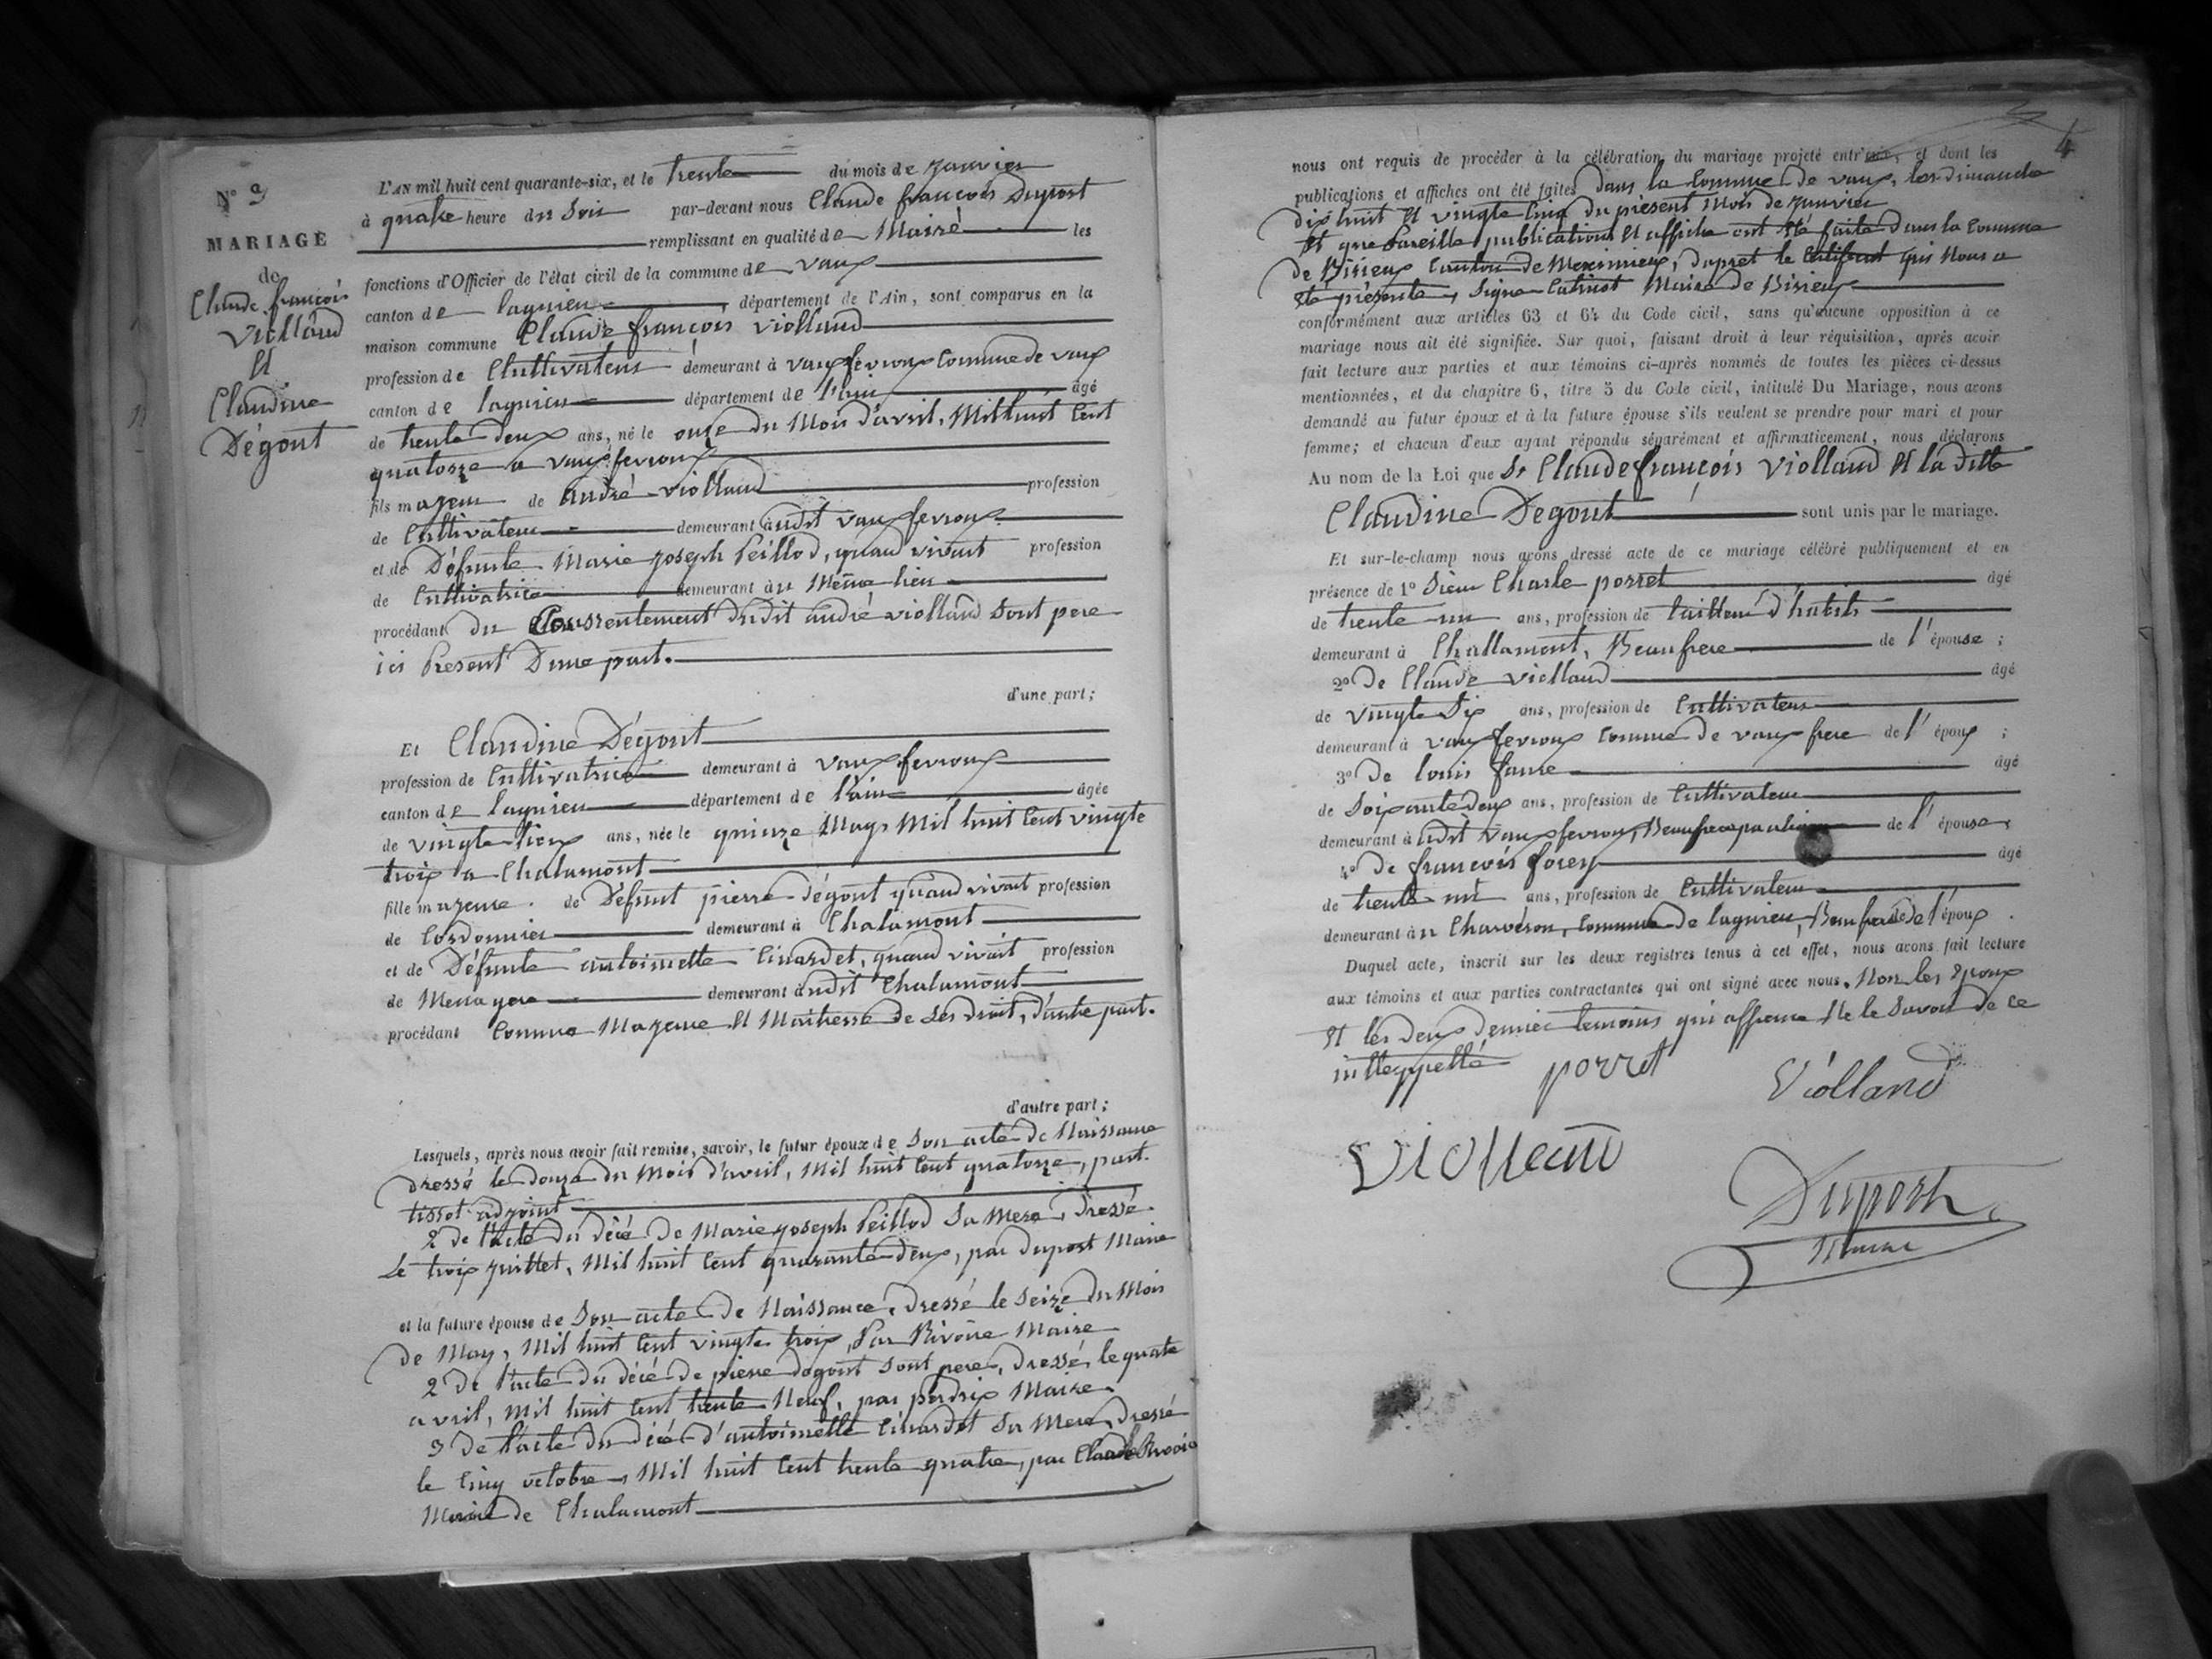 N° 3
MARIAGE
de
Claude françois
Violland
Et
Claudine
Dégout
L'AN mil huit cent quarante-six, et le trente du mois de janvier
à quatre heure du Soir par-devant nous Claude françois Duport
remplissant en qualité de Maire les
fonctions d'Officier de l'état civil de la commune de vaux
canton de lagnieu département de l'Ain, sont comparus en la
maison commune Claude françois violland
profession de Cultivateur demeurant à vauxfevroux Commune de vaux
canton de lagnieu département de l'ain âgé
de trente deux ans, né le onze du Mois d'avril, Mil huit Cent
quatorze a vaux fevroux
fils majeur de André violland profession
de Cultivateur demeurant audit vaux fevroux
et de Défunte Marie joseph Peillod, quand vivait profession
de Cultivatrice demeurant au Même lieu
procédant du Conssentement dudit andré violland Sont pere
ici Présent D'une part.
d'une part;
Et Claudine Dégout
profession de Cultivatrice demeurant à vaux fevroux
canton de lagnieu département de l'ain âgée
de vingte deux ans, née le quinze May Mil huit Cent vingte
trois a Chalamont
fille majeure de Défunt pierre Dégout quand vivait profession
de Cordonnier demeurant à Chalamont
et de Défunte antoinette Cinardet, quand vivait profession
de Menagere demeurant audit Chalamont
procédant Comme Majeure Et Maitresse de Ses Droit, d'autre part.
d'autre part;
Lesquels, après nous avoir fait remise, savoir, le futur époux de Son acte de Naissance
dressé le douze du Mois d'avril, Mil huit Cent quatorze, part
tissot adjoint
2 de l'acte du décé de Marie joseph Peillod Sa Mere, Dressé
Le trois juillet, Mil huit Cent quarante deux, par duport Maire
et la future épouse de Son acte de Naissance, dressé le Seize du Mois
de May, Mil huit Cent vingte trois, Par Rivoire Maire
2 De l'acte du décé de pierre dégout Sont pere, Dressé, le quatre
avril, Mil huit Cent trente Neuf, par perdrix Maire
3 De l'acte du décé d'antoinette Cinardet Sa Mere, Dressé
le Cinq octobre, Mil huit Cent trente quatre, par Claude Rivoire
Maire de Chalamont
4
nous ont requis de procéder à la célébration du mariage projeté entr'eux, et dont les
publications et affiches ont été faites dans la Commune de vaux, les dimanche
dix huit Et vingte Cinq du présent Mois de janvier
Et que Pareille publications Et affiche ont Eté faite Dans la Commune
de Birieux Canton de Meximieux, d'apret le Certificat qui Nous a
Eté présenté, Signe Maire de Birieux
conformément aux articles 63 et 64 du Code civil, sans qu'aucune opposition à ce
mariage nous ait été signifiée. Sur quoi, faisant droit à leur réquisition, après avoir
fait lecture aux parties et aux témoins ci-après nommés de toutes les pièces ci-dessus
mentionnées, et du chapitre 6, titre 5 du Code civil, intitulé Du Mariage, nous avons
demandé au futur époux et à la future épouse s'ils veulent se prendre pour mari et pour
femme; et chacun d'eux ayant répondu séparément et affirmativement, nous déclarons
Au nom de la Loi que Sr Claude françois Violland Et la ditte
Claudine Degout sont unis par le mariage.
Et sur-le-champ nous avons dressé acte de ce mariage célébré publiquement et en
présence de 1° Sieur Charle porret âgé
de trente un ans, profession de tailleur d'habits
demeurant à Challamont, Beaufrere de l'épouse;
2° De Claude violland âgé
de vingte Six ans, profession de Cultivateur
demeurant à vaux fevroux Commune de vaux frere de l'époux;
3° De louis faure âgé
de Soixante deux ans, profession de Cultivateur
demeurant à udit vaux fevroux, de l'épouse,
4° De françois forey âgé
de trente un ans, profession de Cultivateur
demeurant au Charveron, Commune de lagnieu, Beaufrere de l'époux.
Duquel acte, inscrit sur les deux registres tenus à cet effet, nous avons fait lecture
aux témoins et aux parties contractantes qui ont signé avec nous, Non les Epoux
Et les deux dernier temoins qui affirme Ne le Savoir de ce
inttérppellé porret Violland
Violland
Duport
Maire